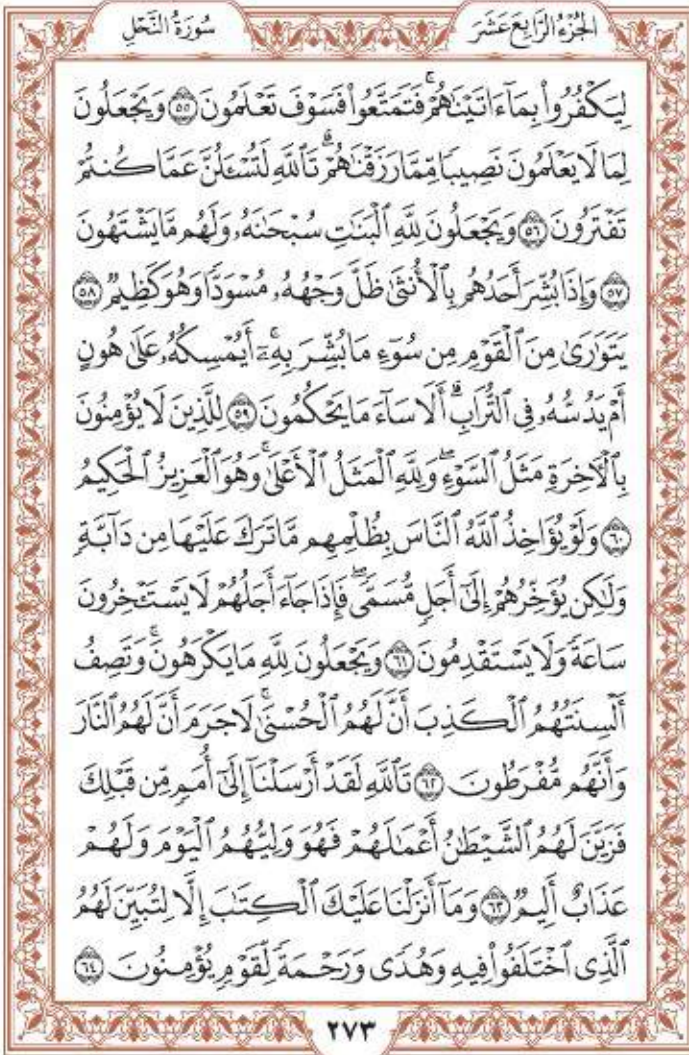 الجُزْءُ الرَّابِعَ عَشَرَ
سُورَةُ النَّحْلِ
لِيَكْفُرُوا۟ بِمَآ ءَاتَيْنَٰهُمْ ۚ فَتَمَتَّعُوا۟ فَسَوْفَ تَعْلَمُونَ ۝٥٥ وَيَجْعَلُونَ
لِمَا لَا يَعْلَمُونَ نَصِيبًا مِّمَّا رَزَقْنَٰهُمْ ۗ تَٱللَّهِ لَتُسْـَٔلُنَّ عَمَّا كُنتُمْ
تَفْتَرُونَ ۝٥٦ وَيَجْعَلُونَ لِلَّهِ ٱلْبَنَٰتِ سُبْحَٰنَهُۥ وَلَهُم مَّا يَشْتَهُونَ
۝٥٧ وَإِذَا بُشِّرَ أَحَدُهُم بِٱلْأُنثَىٰ ظَلَّ وَجْهُهُۥ مُسْوَدًّا وَهُوَ كَظِيمٌ ۝٥٨
يَتَوَٰرَىٰ مِنَ ٱلْقَوْمِ مِن سُوٓءِ مَا بُشِّرَ بِهِۦٓ ۚ أَيُمْسِكُهُۥ عَلَىٰ هُونٍ
أَمْ يَدُسُّهُۥ فِى ٱلتُّرَابِ ۗ أَلَا سَآءَ مَا يَحْكُمُونَ ۝٥٩ لِلَّذِينَ لَا يُؤْمِنُونَ
بِٱلْءَاخِرَةِ مَثَلُ ٱلسَّوْءِ ۖ وَلِلَّهِ ٱلْمَثَلُ ٱلْأَعْلَىٰ ۚ وَهُوَ ٱلْعَزِيزُ ٱلْحَكِيمُ
۝٦٠ وَلَوْ يُؤَاخِذُ ٱللَّهُ ٱلنَّاسَ بِظُلْمِهِم مَّا تَرَكَ عَلَيْهَا مِن دَآبَّةٍ
وَلَٰكِن يُؤَخِّرُهُمْ إِلَىٰٓ أَجَلٍ مُّسَمًّى ۖ فَإِذَا جَآءَ أَجَلُهُمْ لَا يَسْتَـْٔخِرُونَ
سَاعَةً وَلَا يَسْتَقْدِمُونَ ۝٦١ وَيَجْعَلُونَ لِلَّهِ مَا يَكْرَهُونَ ۚ وَتَصِفُ
أَلْسِنَتُهُمُ ٱلْكَذِبَ أَنَّ لَهُمُ ٱلْحُسْنَىٰ ۖ لَا جَرَمَ أَنَّ لَهُمُ ٱلنَّارَ
وَأَنَّهُم مُّفْرَطُونَ ۝٦٢ تَٱللَّهِ لَقَدْ أَرْسَلْنَآ إِلَىٰٓ أُمَمٍ مِّن قَبْلِكَ
فَزَيَّنَ لَهُمُ ٱلشَّيْطَٰنُ أَعْمَٰلَهُمْ فَهُوَ وَلِيُّهُمُ ٱلْيَوْمَ وَلَهُمْ
عَذَابٌ أَلِيمٌ ۝٦٣ وَمَآ أَنزَلْنَا عَلَيْكَ ٱلْكِتَٰبَ إِلَّا لِتُبَيِّنَ لَهُمُ
ٱلَّذِى ٱخْتَلَفُوا۟ فِيهِ وَهُدًى وَرَحْمَةً لِّقَوْمٍ يُؤْمِنُونَ ۝٦٤
٢٧٣